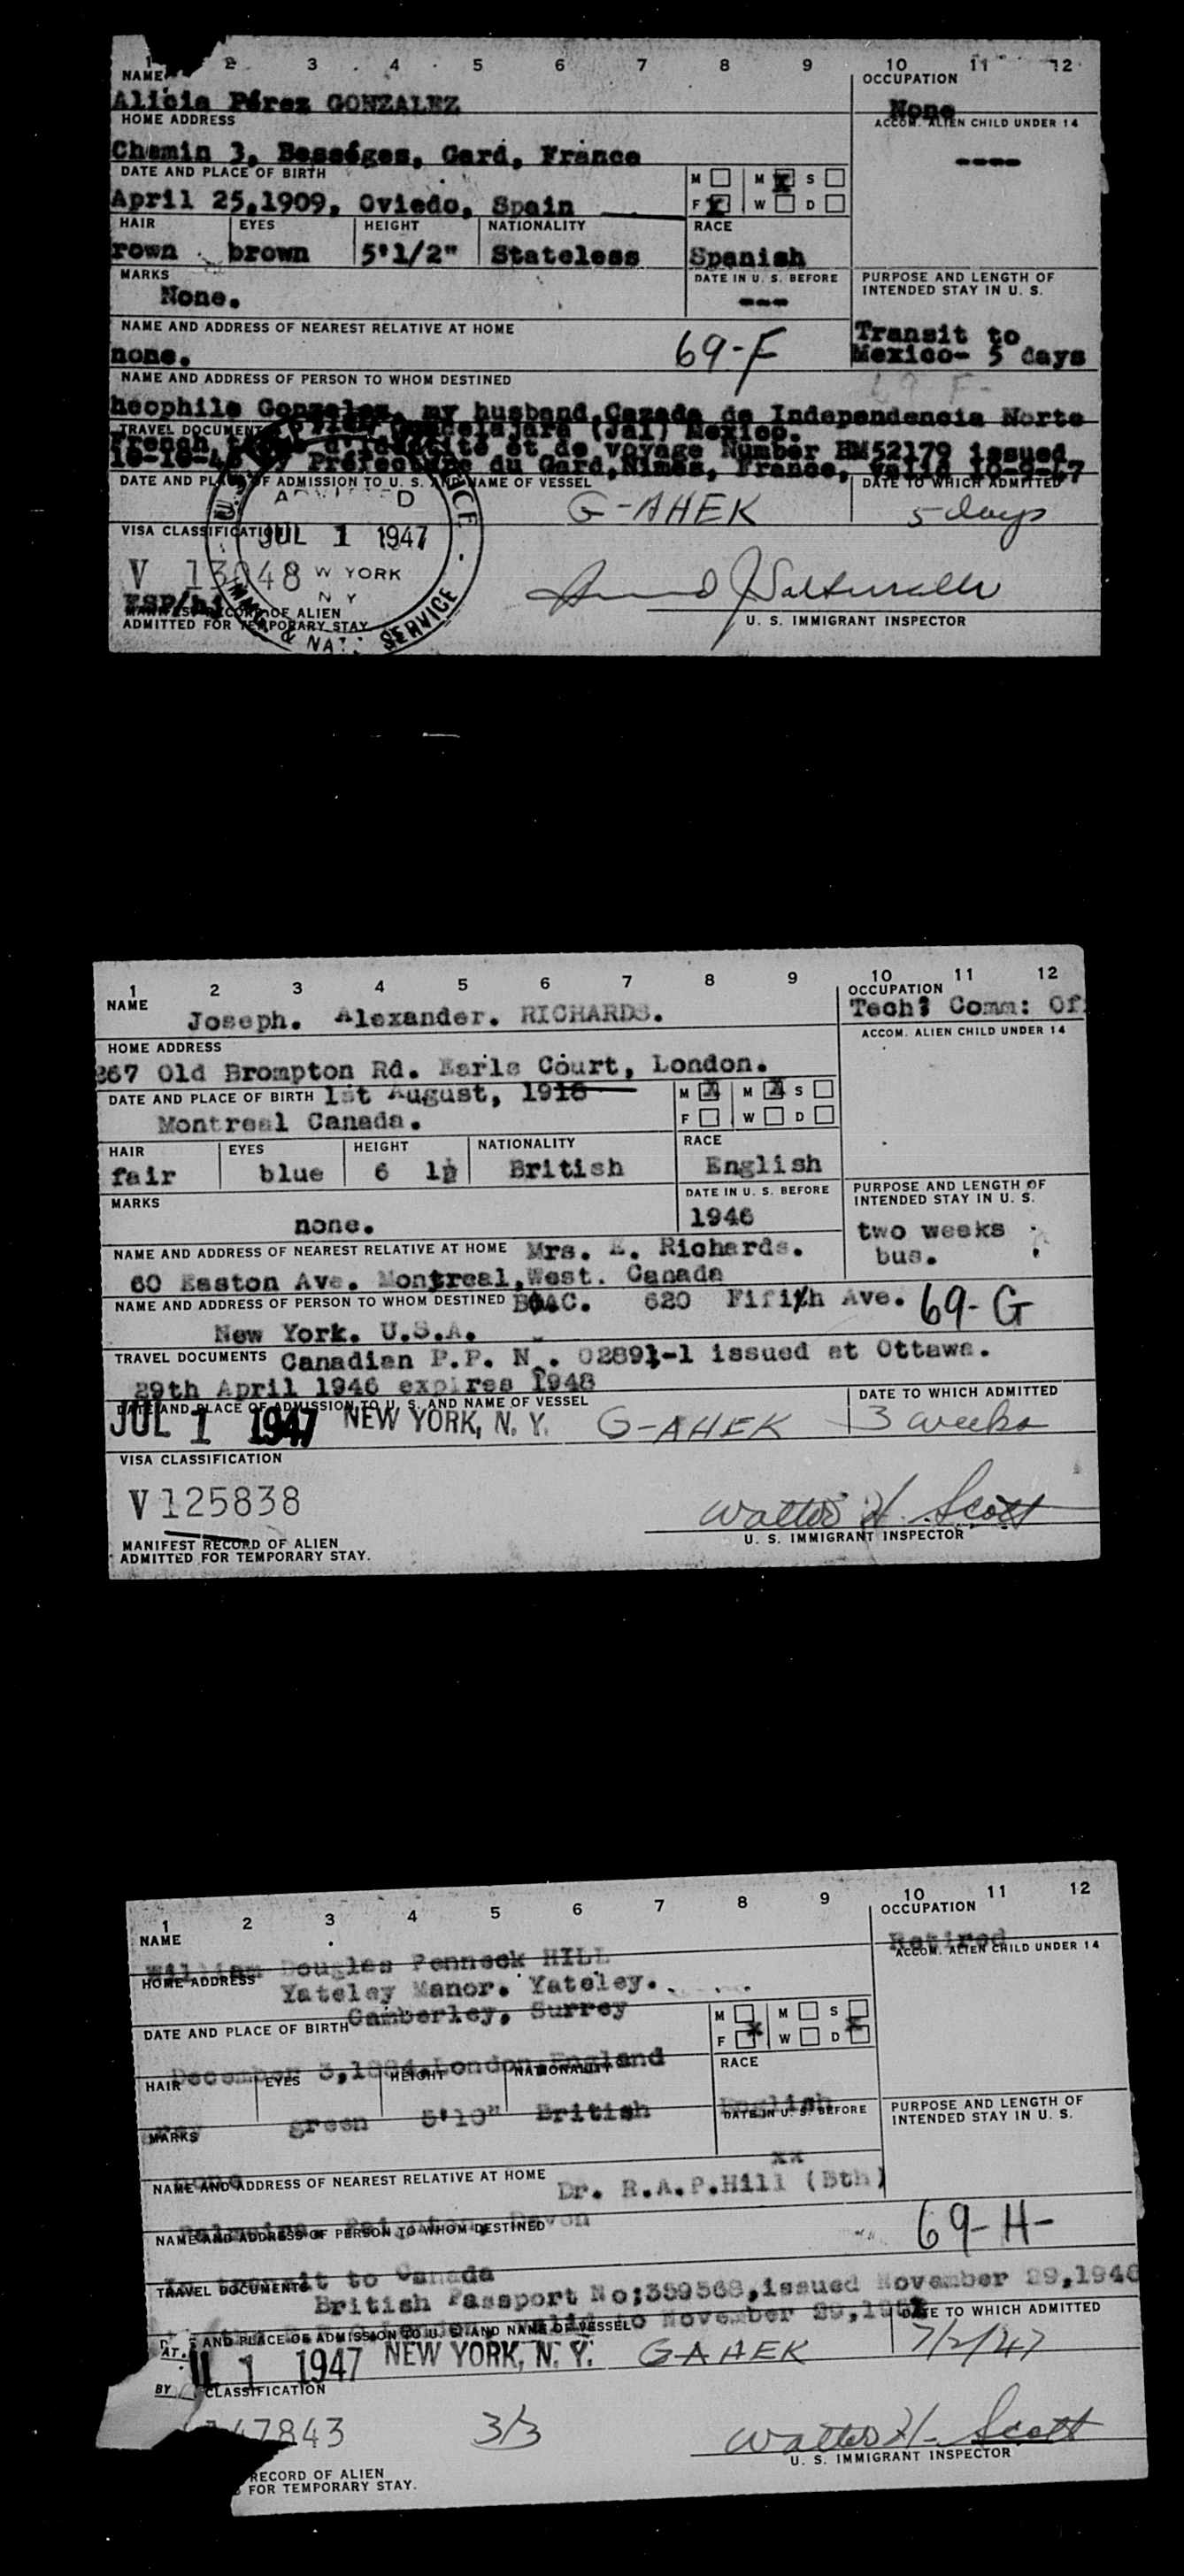 1 2 3 4 5 6 7 8 9 10 11 12
NAME OCCUPATION
Alicia Pérez GONZALEZ None
HOME ADDRESS ACCOM. ALIEN CHILD UNDER 14
Chemin 3, Bességes, Gard, France ----
DATE AND PLACE OF BIRTH M M X S
April 25,1909, Oviedo, Spain F X W D
HAIR EYES HEIGHT NATIONALITY RACE
rown brown 5'1/2" Stateless Spanish
MARKS DATE IN U. S. BEFORE PURPOSE AND LENGTH OF
INTENDED STAY IN U. S.
None. ---
NAME AND ADDRESS OF NEAREST RELATIVE AT HOME Transit to
none. 69-F Mexico- 5 days
NAME AND ADDRESS OF PERSON TO WHOM DESTINED
heophile Gonzalez, my husband, Cazada de Independencia Norte
Guadelajara (Jal) Mexico.
TRAVEL DOCUMENT
French d'identité et de voyage Number HM52179 issued
by Préfecture du Gard, Nimes, France, valid 10-9-47
DATE AND PLACE OF ADMISSION TO U. S. AND NAME OF VESSEL DATE TO WHICH ADMITTED
ADMITTED G-AHEK 5 days
VISA CLASSIFICATION JUL 1 1947
V 13048 W YORK
N Y
MANIFEST RECORD OF ALIEN
ADMITTED FOR TEMPORARY STAY
IMM. & NAT. SERVICE
U. S. IMMIGRANT INSPECTOR
1 2 3 4 5 6 7 8 9 10 11 12
NAME OCCUPATION
Joseph. Alexander. RICHARDS. Tech: Comm: Of
HOME ADDRESS ACCOM. ALIEN CHILD UNDER 14
267 Old Brompton Rd. Earls Court, London.
DATE AND PLACE OF BIRTH 1st August, 1916 M X M X S
Montreal Canada. F W D
HAIR EYES HEIGHT NATIONALITY RACE
fair blue 6 1½ British English
MARKS DATE IN U. S. BEFORE PURPOSE AND LENGTH OF
INTENDED STAY IN U. S.
none. 1946 two weeks
bus.
NAME AND ADDRESS OF NEAREST RELATIVE AT HOME Mrs. E. Richards.
60 Easton Ave. Montreal,West. Canada
NAME AND ADDRESS OF PERSON TO WHOM DESTINED BOAC. 620 Fifth Ave. 69-G
New York. U.S.A.
TRAVEL DOCUMENTS Canadian P.P. N . 02891-1 issued at Ottawa.
29th April 1946 expires 1948
DATE AND PLACE OF ADMISSION TO U. S. AND NAME OF VESSEL DATE TO WHICH ADMITTED
JUL 1 1947 NEW YORK, N. Y. G-AHEK 3 weeks
VISA CLASSIFICATION
V 125838
Walter H. Scott
U. S. IMMIGRANT INSPECTOR
MANIFEST RECORD OF ALIEN
ADMITTED FOR TEMPORARY STAY.
1 2 3 4 5 6 7 8 9 10 11 12
NAME OCCUPATION
William Douglas Penneck HILL Retired
HOME ADDRESS ACCOM. ALIEN CHILD UNDER 14
Yateley Manor. Yateley.
Camberley, Surrey
DATE AND PLACE OF BIRTH M M S
F X W D X
December 3, London,England
HAIR EYES HEIGHT NATIONALITY RACE
green 5'10" British English
MARKS DATE IN U. S. BEFORE PURPOSE AND LENGTH OF
INTENDED STAY IN U. S.
none xx
NAME AND ADDRESS OF NEAREST RELATIVE AT HOME Dr. R.A.P.Hill (Bth)
Devon
NAME AND ADDRESS OF PERSON TO WHOM DESTINED 69-H-
In transit to Canada
TRAVEL DOCUMENTS British Passport No;359568,issued November 29,1946
valid to November 29,
AND PLACE OF ADMISSION TO U. S. AND NAME OF VESSEL DATE TO WHICH ADMITTED
AT. 1 1947 NEW YORK, N. Y. G-AHEK 7/2/47
BY CLASSIFICATION
47843 3/3 Walter H. Scott
U. S. IMMIGRANT INSPECTOR
RECORD OF ALIEN
FOR TEMPORARY STAY.